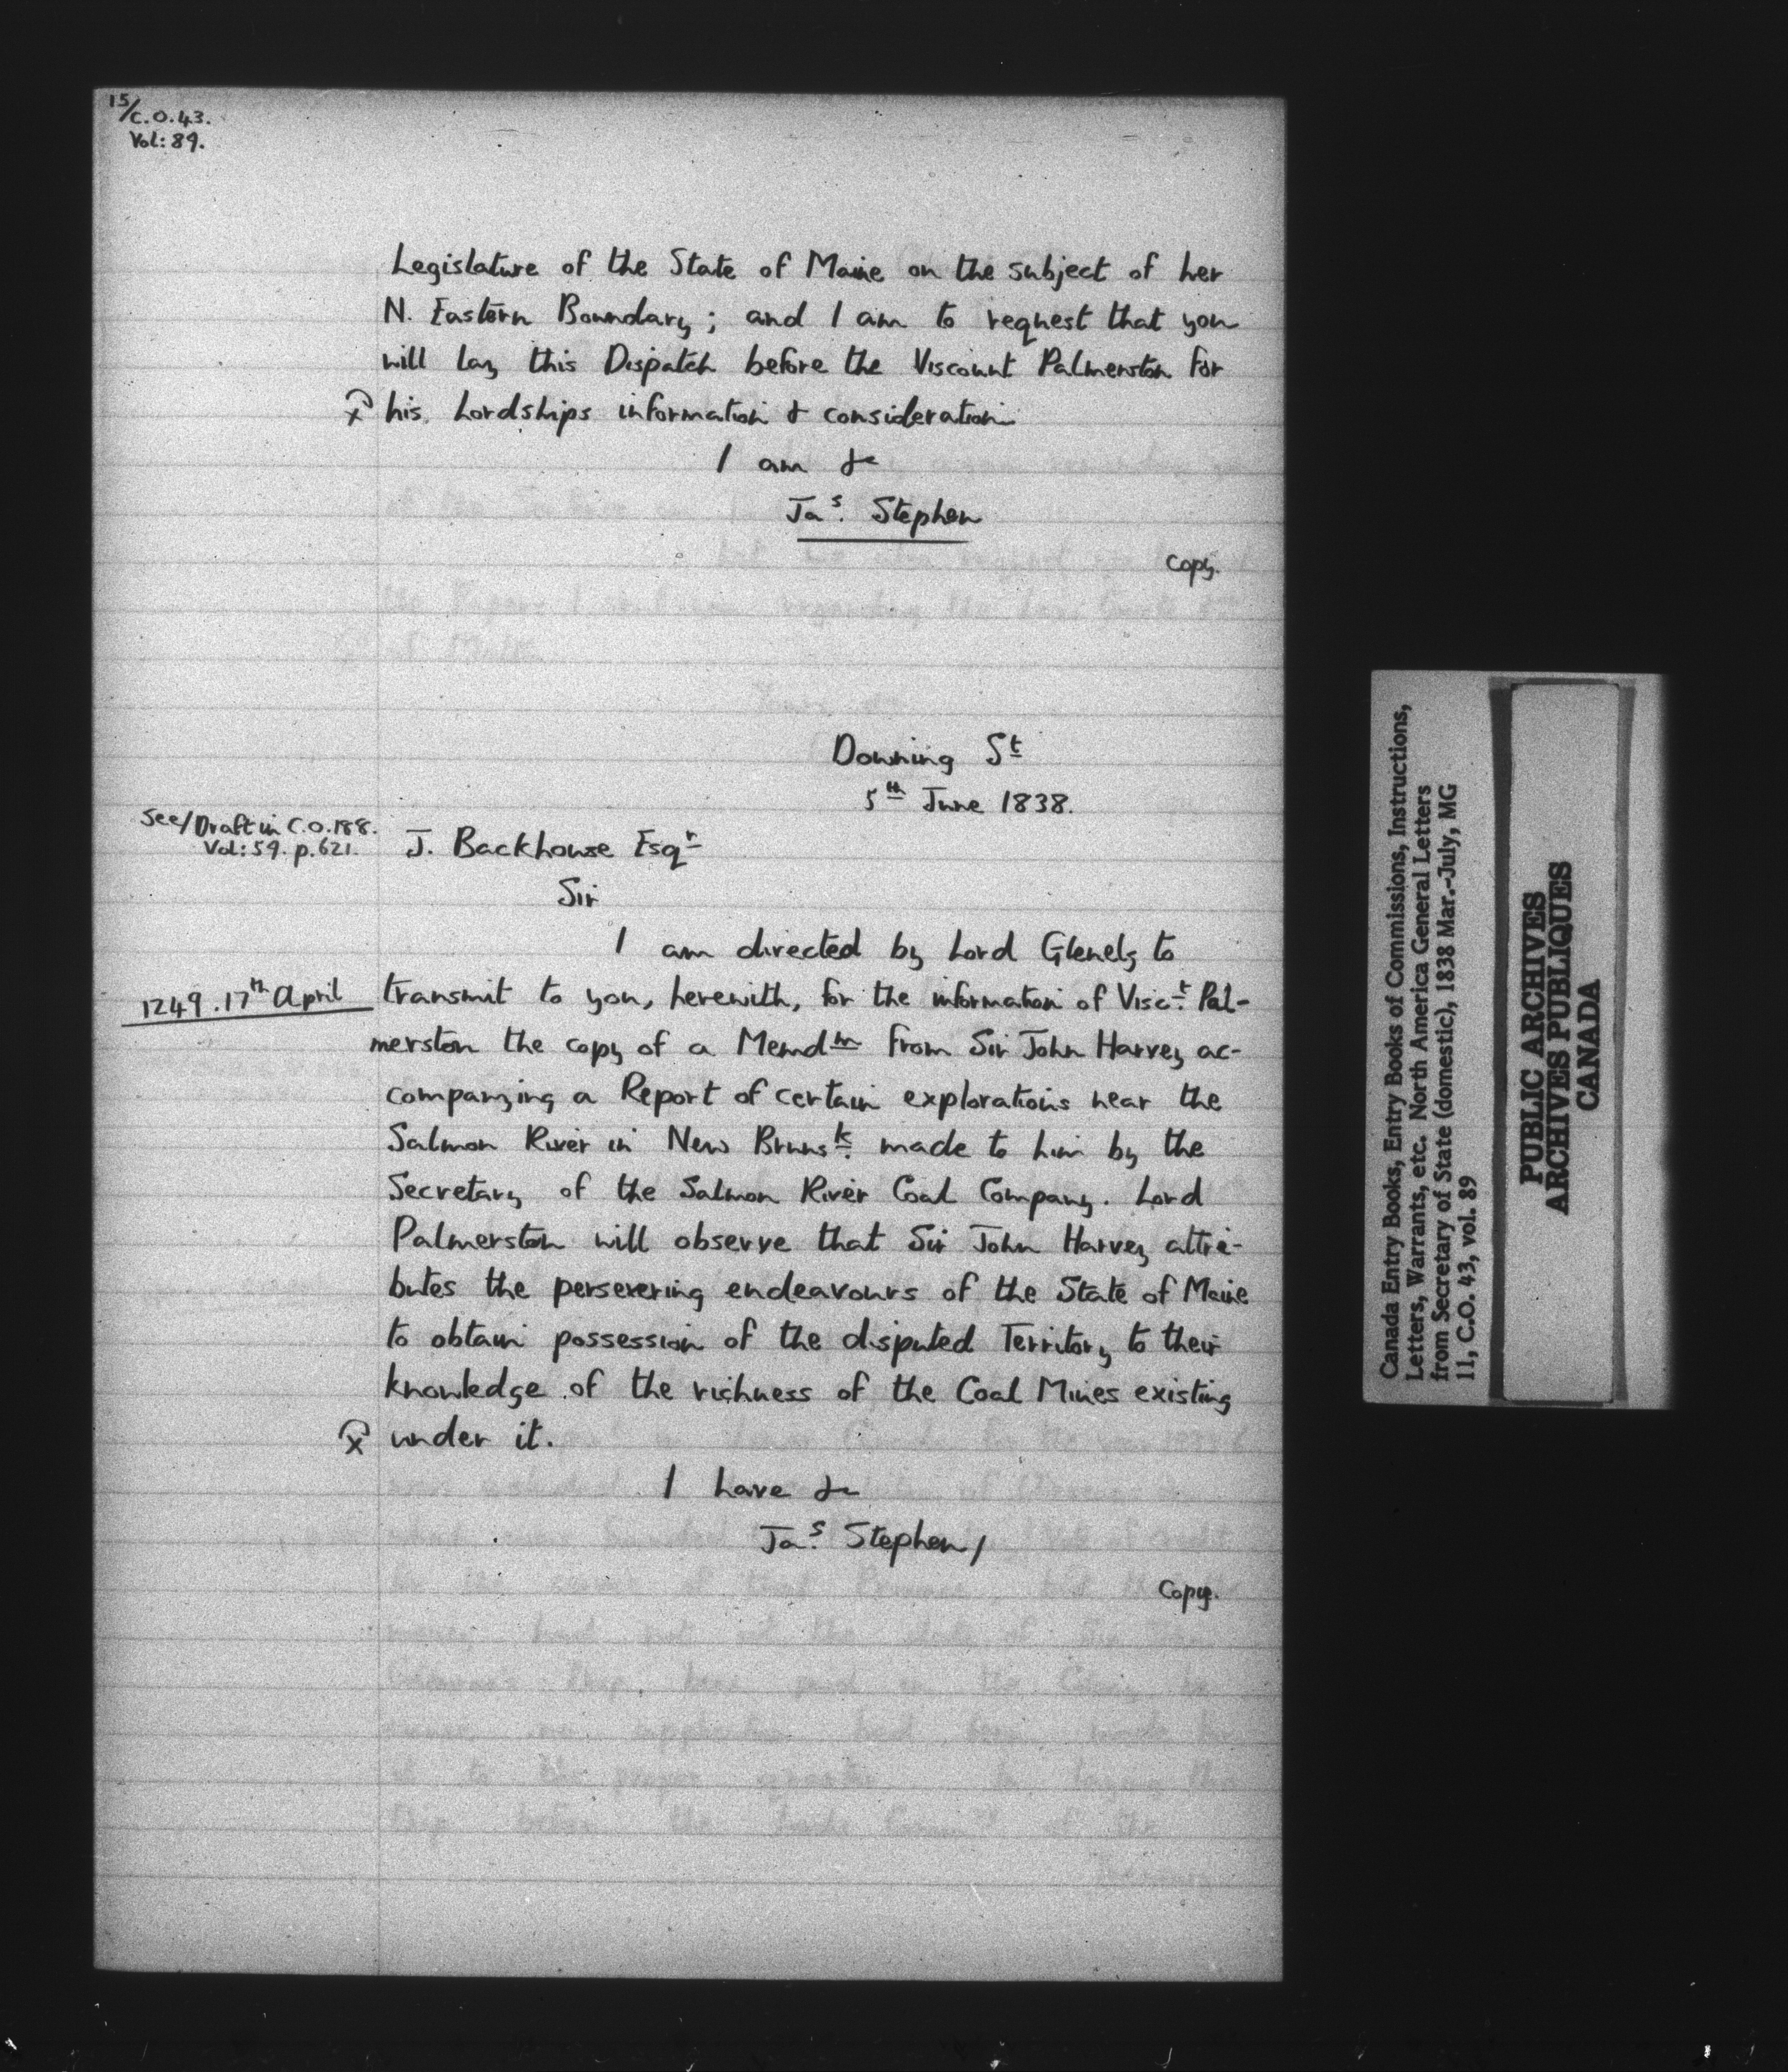 15/C.O.43.
Vol: 89.
Legislature of the State of Maine on the subject of her
N. Eastern Boundary; and I am to request that you
will lay this Dispatch before the Viscount Palmerston for
his Lordships information & consideration
I am &c
Jas. Stephen
Copy.
Downing St
5th June 1838.
See/Draft in C.O.188.
Vol: 59. p.621.
J. Backhouse Esqr
Sir
I am directed by Lord Glenelg to
1249. 17th April
transmit to you, herewith, for the information of Visct. Pal-
merston the copy of a Memdm from Sir John Harvey ac-
companying a Report of certain explorations near the
Salmon River in New Brunsk. made to him by the
Secretary of the Salmon River Coal Company. Lord
Palmerston will observe that Sir John Harvey attri-
butes the persevering endeavours of the State of Maine
to obtain possession of the disputed Territory to their
knowledge of the richness of the Coal Mines existing
under it.
I have &c
Jas. Stephen/
Copy.
Canada Entry Books, Entry Books of Commissions, Instructions,
Letters, Warrants, etc. North America General Letters
from Secretary of State (domestic), 1838 Mar.-July, MG
11, C.O. 43, vol. 89
PUBLIC ARCHIVES
ARCHIVES PUBLIQUES
CANADA